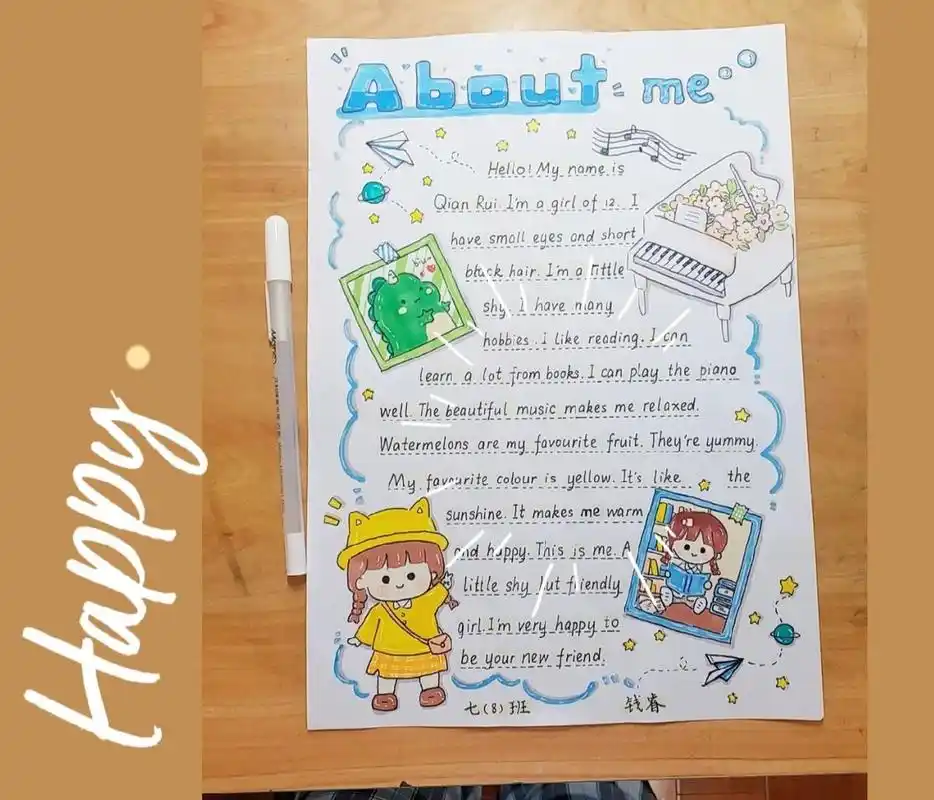 Happy.
About me
Hello! My name is
Qian Rui. I'm a girl of 12. I
have small eyes and short
black hair. I'm a little
shy. I have many
hobbies. I like reading. I can
learn a lot from books. I can play the piano
well. The beautiful music makes me relaxed.
Watermelons are my favourite fruit. They're yummy.
My favourite colour is yellow. It's like the
sunshine. It makes me warm
and happy. This is me. A
little shy but friendly
girl. I'm very happy to
be your new friend.
七(8)班 钱睿